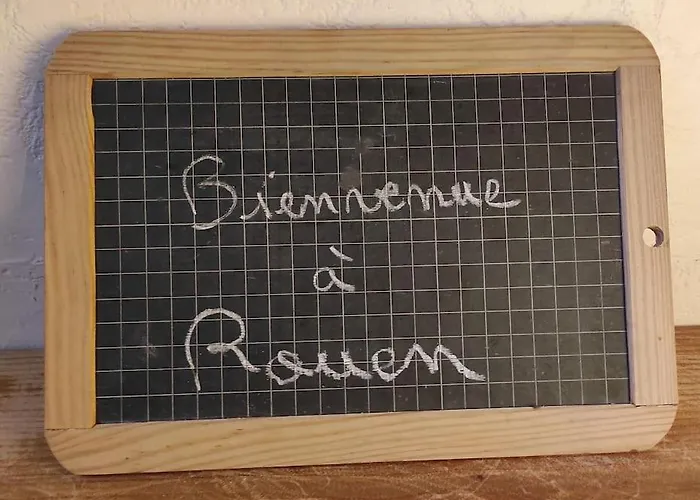 Bienvenue
à
Rouen